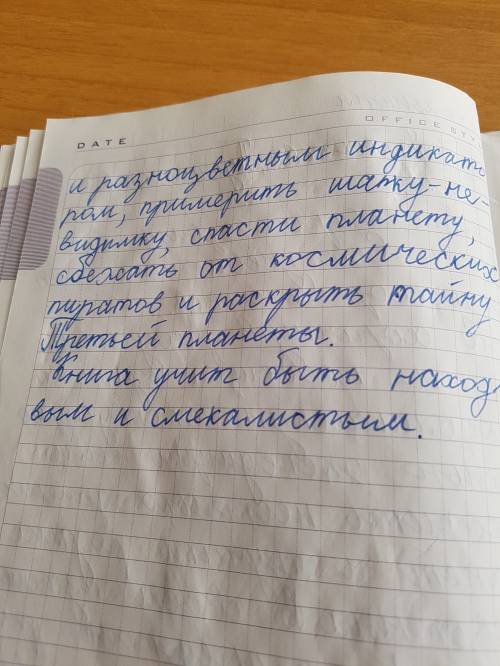 DATE
OFFICE STY
и разноцветным индикато
ром, примерить шапку-не-
видимку, спасти планету,
сбежать от космических
пиратов и раскрыть тайну
Третьей планеты.
Книга учит быть наход
вым и смекалистым.